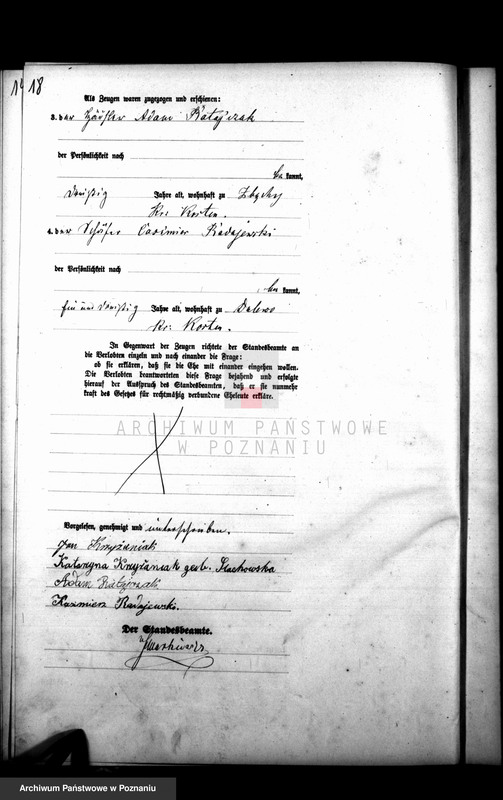 18
Als Zeugen waren zugezogen und erschienen:
3. der Häusler Adam Ratajczak
der Persönlichkeit nach
be kannt,
dreißig Jahre alt, wohnhaft zu Zbechy
Kr: Kosten.
4. der Schäfer Casimier Radajewski
der Persönlichkeit nach
be kannt,
ein und dreißig Jahre alt, wohnhaft zu Dalewo
Kr: Kosten.
In Gegenwart der Zeugen richtete der Standesbeamte an
die Verlobten einzeln und nach einander die Frage:
ob sie erklären, daß sie die Ehe mit einander eingehen wollen.
Die Verlobten beantworteten diese Frage bejahend und erfolgte
hierauf der Ausspruch des Standesbeamten, daß er sie nunmehr
kraft des Gesetzes für rechtmäßig verbundene Eheleute erkläre.
ARCHIWUM PAŃSTWOWE
W POZNANIU
Vorgelesen, genehmigt und unterschrieben.
Jan Krzyżaniak
Katarzyna Krzyżaniak geb. Stachowska
Adam Ratajczak
Kazimierz Radajewski.
Der Standesbeamte.
Archiwum Państwowe w Poznaniu